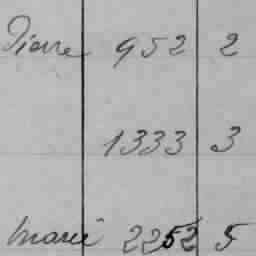 Pierre 952 2
1333 3
Marie 2252 5